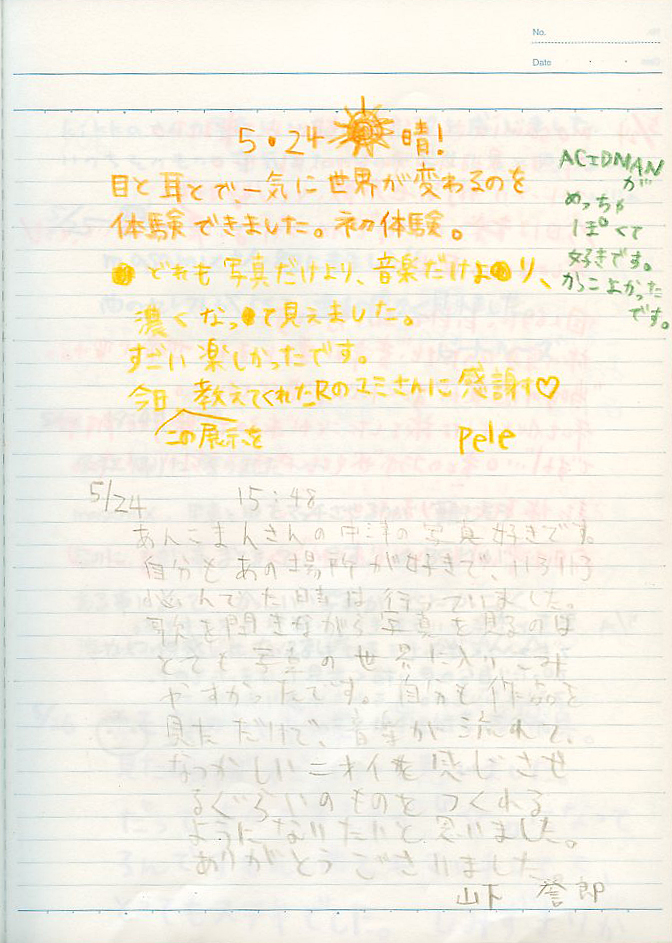 No.
Date
5・24 晴!
目と耳とで、一気に世界が変わるのを
体験できました。初体験。
どれも写真だけより、音楽だけより、
濃くなって見えました。
すごい楽しかったです。
今日 この展示を 教えてくれたRのユミさんに感謝す♡
pele
ACIDMAN
が
めっちゃ
ぽくて
好きです。
かっこよかった
です。
5/24 15:48
あんこまんさんの中津の写真好きです。
自分もあの場所が好きで、いろいろ
悩んでた時は行っていました。
歌を聞きながら写真を見るのは
とても写真の世界に入りこみ
やすかったです。自分も作品を
見ただけで、音楽が流れて、
なつかしいニオイを感じさせ
るぐらいのものをつくれる
ようになりたいと思いました。
ありがとうございました
山下 誉郎